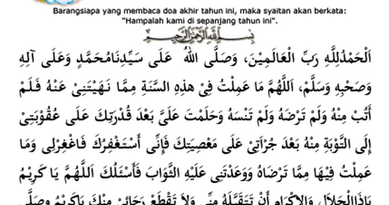 Barangsiapa yang membaca doa akhir tahun ini, maka syaitan akan berkata:
"Hampalah kami di sepanjang tahun ini".
بِسْمِ اللَّهِ الرَّحْمَٰنِ الرَّحِيمِ
اَلْحَمْدُلِلَّهِ رَبِّ الْعَالَمِيْنَ، وَصَلَّى اللهُ عَلَى سَيِّدِنَامُحَمَّدٍ وَعَلَى آلِهِ
وَصَحْبِهِ وَسَلَّمْ، اَللَّهُمَّ مَا عَمِلْتُ فِيْ هٰذِهِ السَّنَةِ مِمَّا نَهَيْتَنِيْ عَنْهُ فَلَمْ
أَتُبْ مِنْهُ وَلَمْ تَرْضَهُ وَلَمْ تَنْسَهُ وَحَلَمْتَ عَلَيَّ بَعْدَ قُدْرَتِكَ عَلَى عُقُوْبَتِيْ
إِلَى التَّوْبَةِ مِنْهُ بَعْدَ جُرْأَتِيْ عَلَى مَعْصِيَتِكَ فَإِنِّي أَسْتَغْفِرُكَ فَاغْفِرْلِي وَمَا
عَمِلْتُ فِيْهَا مِمَّا تَرْضَاهُ وَوَعَدْتَنِي عَلَيْهِ الثَّوَابَ فَأَسْئَلُكَ اَللَّهُمَّ يَا كَرِيْمُ
يَاذَاالْجَلَالِ وَالْإِكْرَامِ أَنْ تَتَقَبَّلَهُ مِنِّي وَلَا تَقْطَعْ رَجَائِيْ مِنْكَ يَاكَرِيْمُ وَصَلَّى